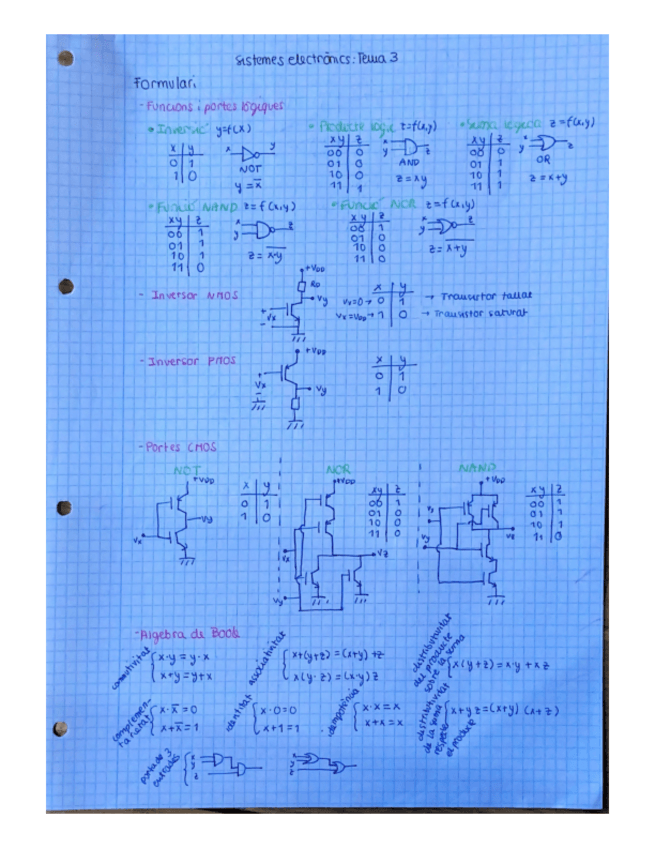 Sistemes electrònics: Tema 3
Formulari
- Funcions i portes lògiques
• Inversió y=f(x) • Producte lògic z=f(x,y) • Suma lògica z=f(x,y)
x y
0 1
1 0
x y
NOT
y = x̅
xy z
00 0
01 0
10 0
11 1
x y z
AND
z = xy
xy z
00 0
01 1
10 1
11 1
x y z
OR
z = x+y
• Funció NAND z=f(x,y) • Funció NOR z=f(x,y)
xy z
00 1
01 1
10 1
11 0
x y z
z = \overline{x·y}
xy z
00 1
01 0
10 0
11 0
x y z
z = \overline{x+y}
- Inversor NMOS
+VDD
RD
Vy
+
Vx
-
x y
Vx=0 → 0 1 → Transistor tallat
Vx=VDD → 1 0 → Transistor saturat
- Inversor PMOS
+VDD
+
Vx
-
Vy
x y
0 1
1 0
- Portes CMOS
NOT NOR NAND
+VDD
Vy
Vx
x y
0 1
1 0
+VDD
Vx
Vz
Vy
xy z
00 1
01 0
10 0
11 0
+VDD
Vy
xy z
00 1
01 1
10 1
11 0
- Àlgebra de Boole
commutivitat
x·y = y·x
x+y = y+x
associativitat
x+(y+z) = (x+y)+z
x(y·z) = (x·y)z
distributivitat del producte sobre la suma
x(y+z) = x·y + xz
complementarietat
x·x̅ = 0
x+x̅ = 1
identitat
x·0=0
x+1=1
idempotència
x·x = x
x+x = x
distributivitat de la suma respecte el producte
x+yz=(x+y)(x+z)
porta de 3 entrades
x
y
z
x
y
z